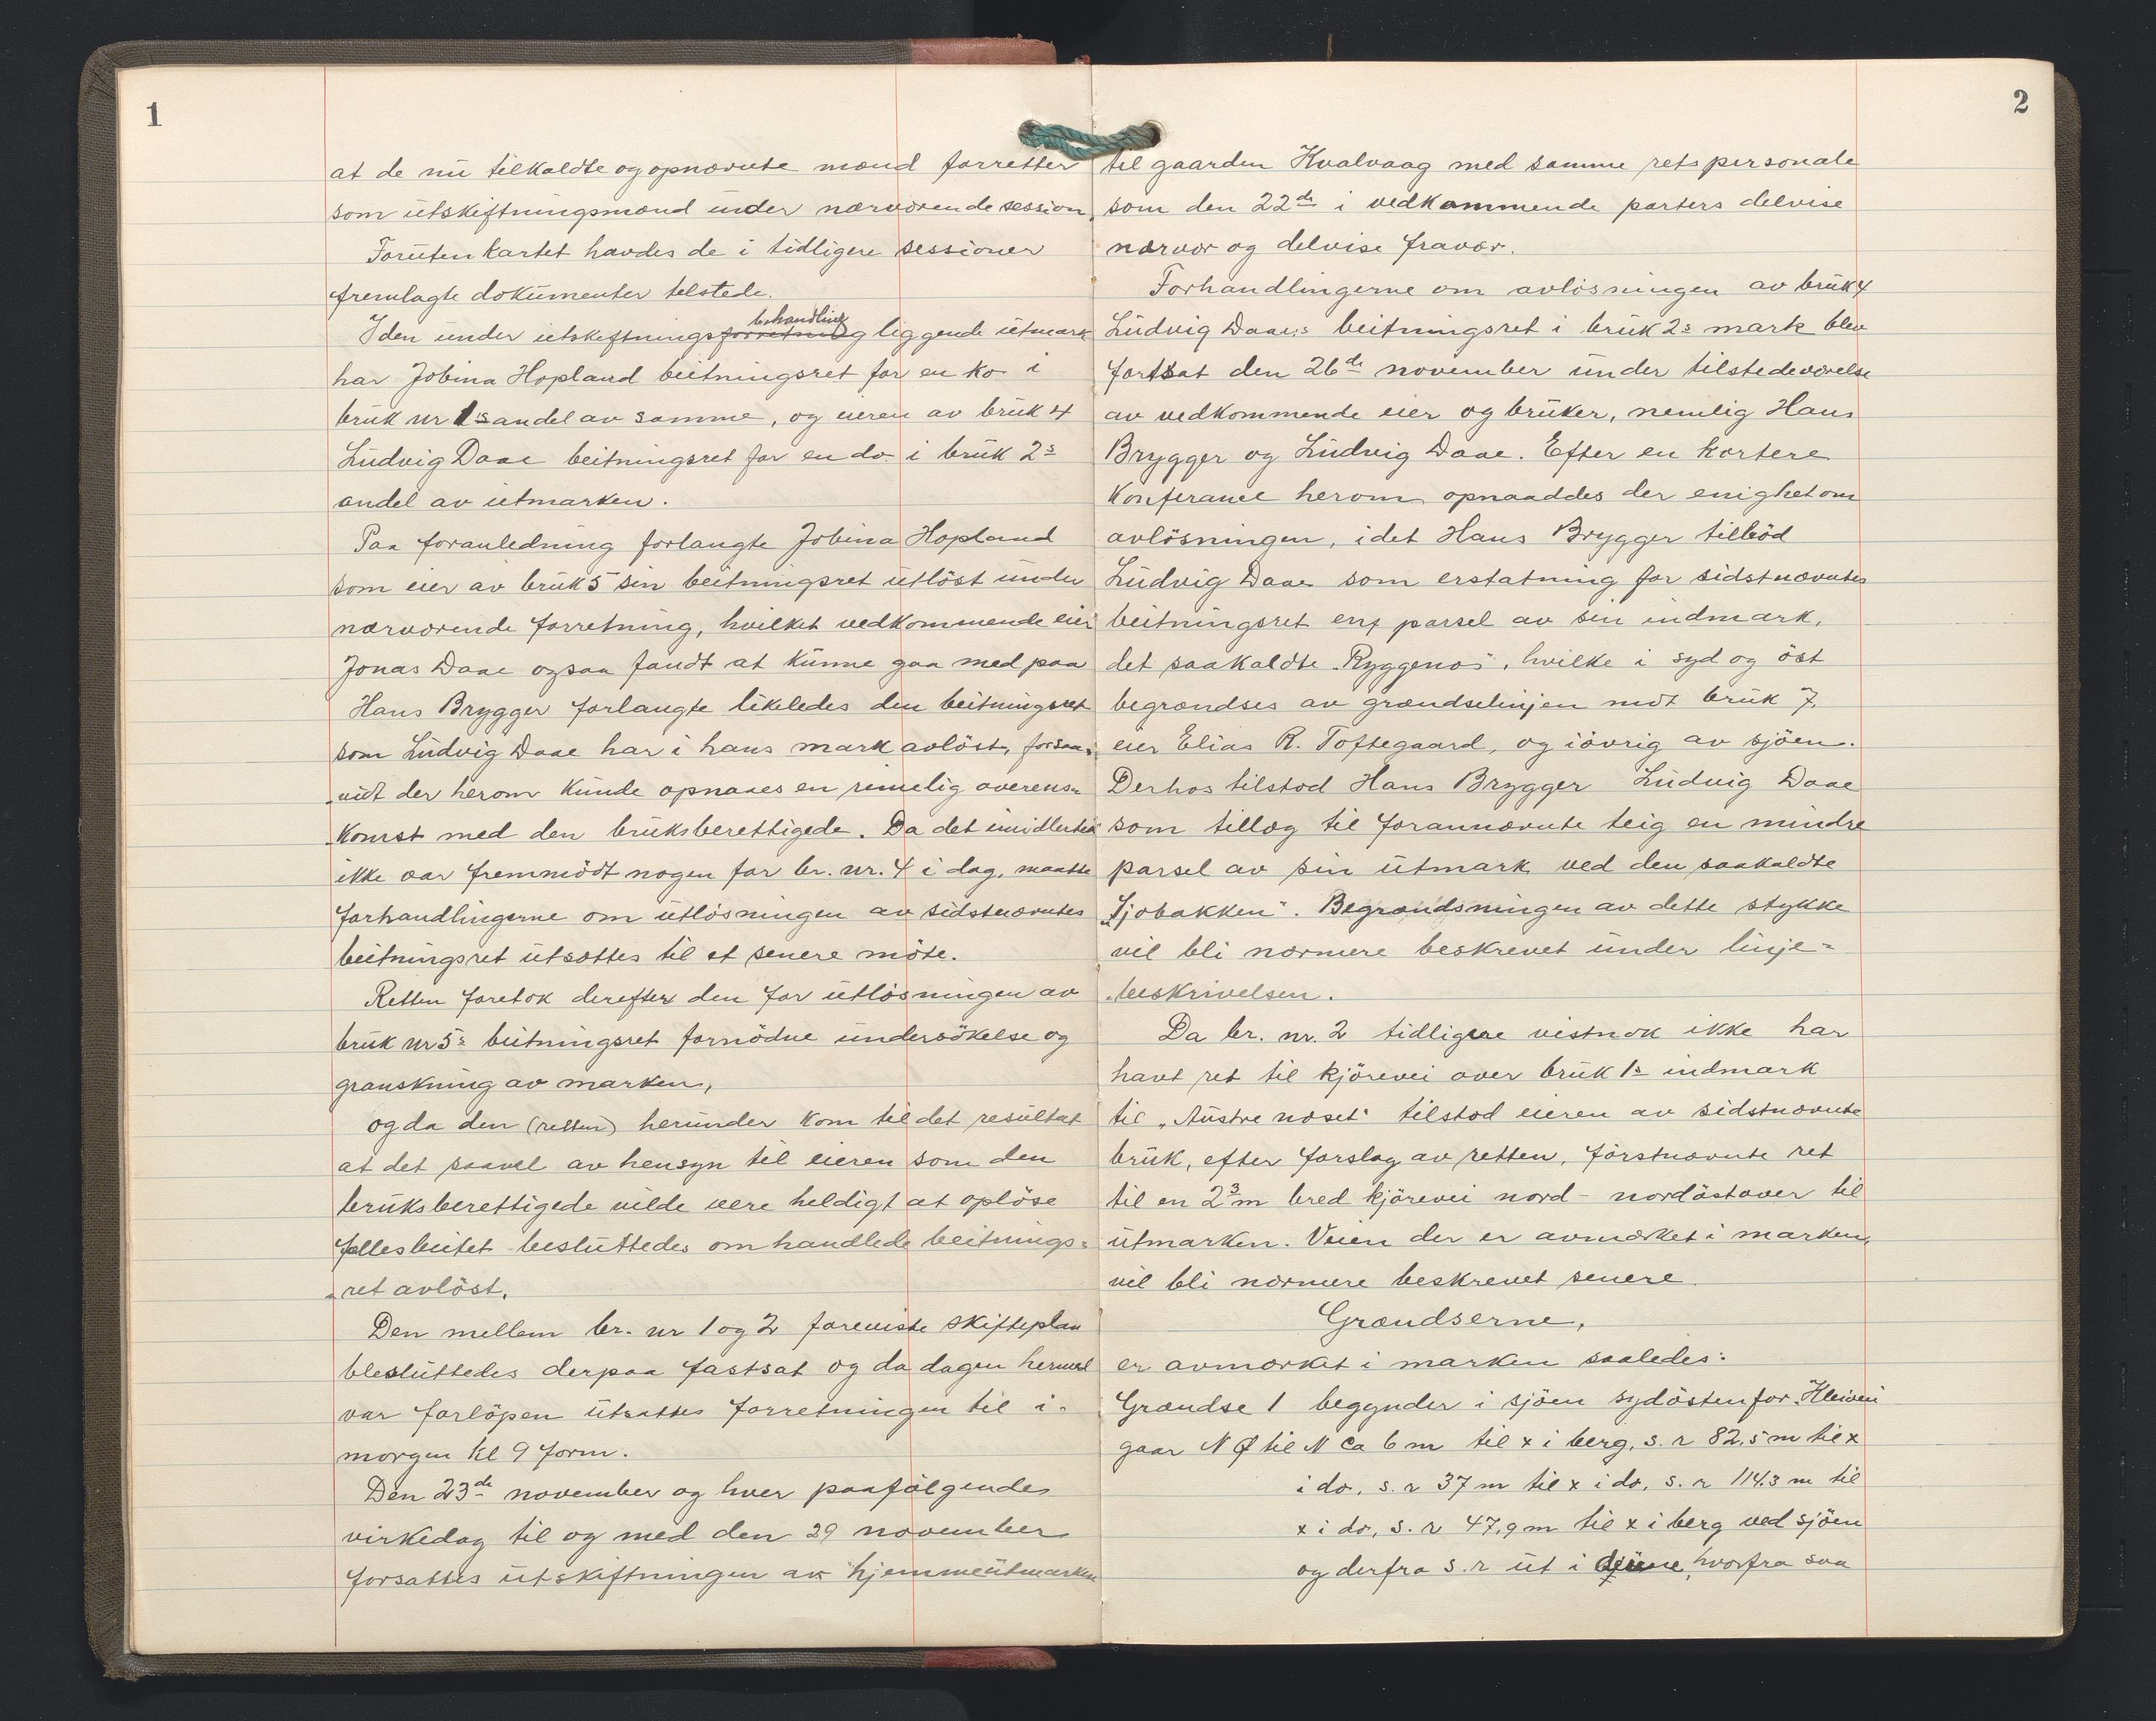 1
at de nu tilkaldte og opnævnte mænd forretter
som utskiftningsmænd under nærværende session.
Foruten kartet havdes de i tidligere sessioner
fremlagte dokumenter tilstede.
behandling
I den under utskiftningsforretning liggende utmark
har Jobina Hopland beitningsret for en ko i
bruk nr 1's andel av samme, og eieren av bruk 4
Ludvig Daae beitningsret for en do. i bruk 2s
andel av utmarken.
Paa foranledning forlangte Jobina Hopland
som eier av bruk 5 sin beitningsret utlöst under
nærværende forretning, hvilket vedkommende eier
Jonas Daae ogsaa fandt at kunne gaa med paa
Hans Brygger forlangte likeledes den beitningsret
som Ludvig Daae har i hans mark avlöst, forsaa-
vidt der herom kunde opnaaes en rimelig overens-
komst med den bruksberettigede. Da det imidlertid
ikke var fremmödt nogen for br. nr. 4 i dag, maatte
forhandlingerne om utlösningen av sidstnævntes
beitningsret utsættes til et senere möte.
Retten foretok derefter den for utlösningen av
bruk nr 5s beitningsret fornödne undersökelse og
granskning av marken,
og da den (retten) herunder kom til det resultat
at det saavel av hensyn til eieren som den
bruksberettigede vilde være heldigt at oplöse
fællesbeitet besluttedes omhandlede beitnings-
ret avlöst.
Den mellem br. nr 1 og 2 foreviste skifteplan
blesluttedes derpaa fastsat og da dagen hermed
var forlöpen utsattes forretningen til i-
morgen kl 9 form.
Den 23de november og hver paafölgende
virkedag til og med den 29 november
forsattes utskiftningen av hjemmeutmarken
2
til gaarden Kvalvaag med samme retspersonale
som den 22de i vedkommende parters delvise
nærvær og delvise fravær.
Forhandlingerne om avlösningen av bruk 4
Ludvig Daaes beitningsret i bruk 2s mark blev
fortsat den 26de november under tilstedeværelse
av vedkommende eier og bruker, nemlig Hans
Brygger og Ludvig Daae. Efter en kortere
konferance herom opnaaddes der enighet om
avlösningen, idet Hans Brygger tilböd
Ludvig Daae som erstatning for sidstnævntes
beitningsret en parsel av sin indmark,
det saakaldte "Ryggenos", hvilke i syd og öst
begrændses av grændselinjen mot bruk 7,
eier Elias R. Toftegaard, og iövrig av sjöen.
Derhos tilstod Hans Brygger Ludvig Daae
som tillæg til forannævnte teig en mindre
parsel av sin utmark ved den saakaldte
"Sjobakken". Begrændsningen av dette stykke
vil bli nærmere beskrevet under linje-
beskrivelsen.
Da br. nr. 2 tidligere vistnok ikke har
havt ret til kjörevei over bruk 1s indmark
til "Austre næset" tilstod eieren av sidstnævnte
bruk, efter forslag av retten, förstnævnte ret
til en 2,3 m bred kjörevei nord - nordöstover til
utmarken. Veien der er avmærket i marken,
vil bli nærmere beskrevet senere.
Grændserne,
er avmærket i marken saaledes:
Grændse 1 begynder i sjöen sydöstenfor "Kleiven"
gaar N Ø til N ca 6 m til x i berg, s. r 82,5 m til x
i do, s. r 37 m til x i do, s. r 114,3 m til
x i do, s. r 47,9 m til x i berg ved sjöen
og derfra s. r ut i hvorfra saa